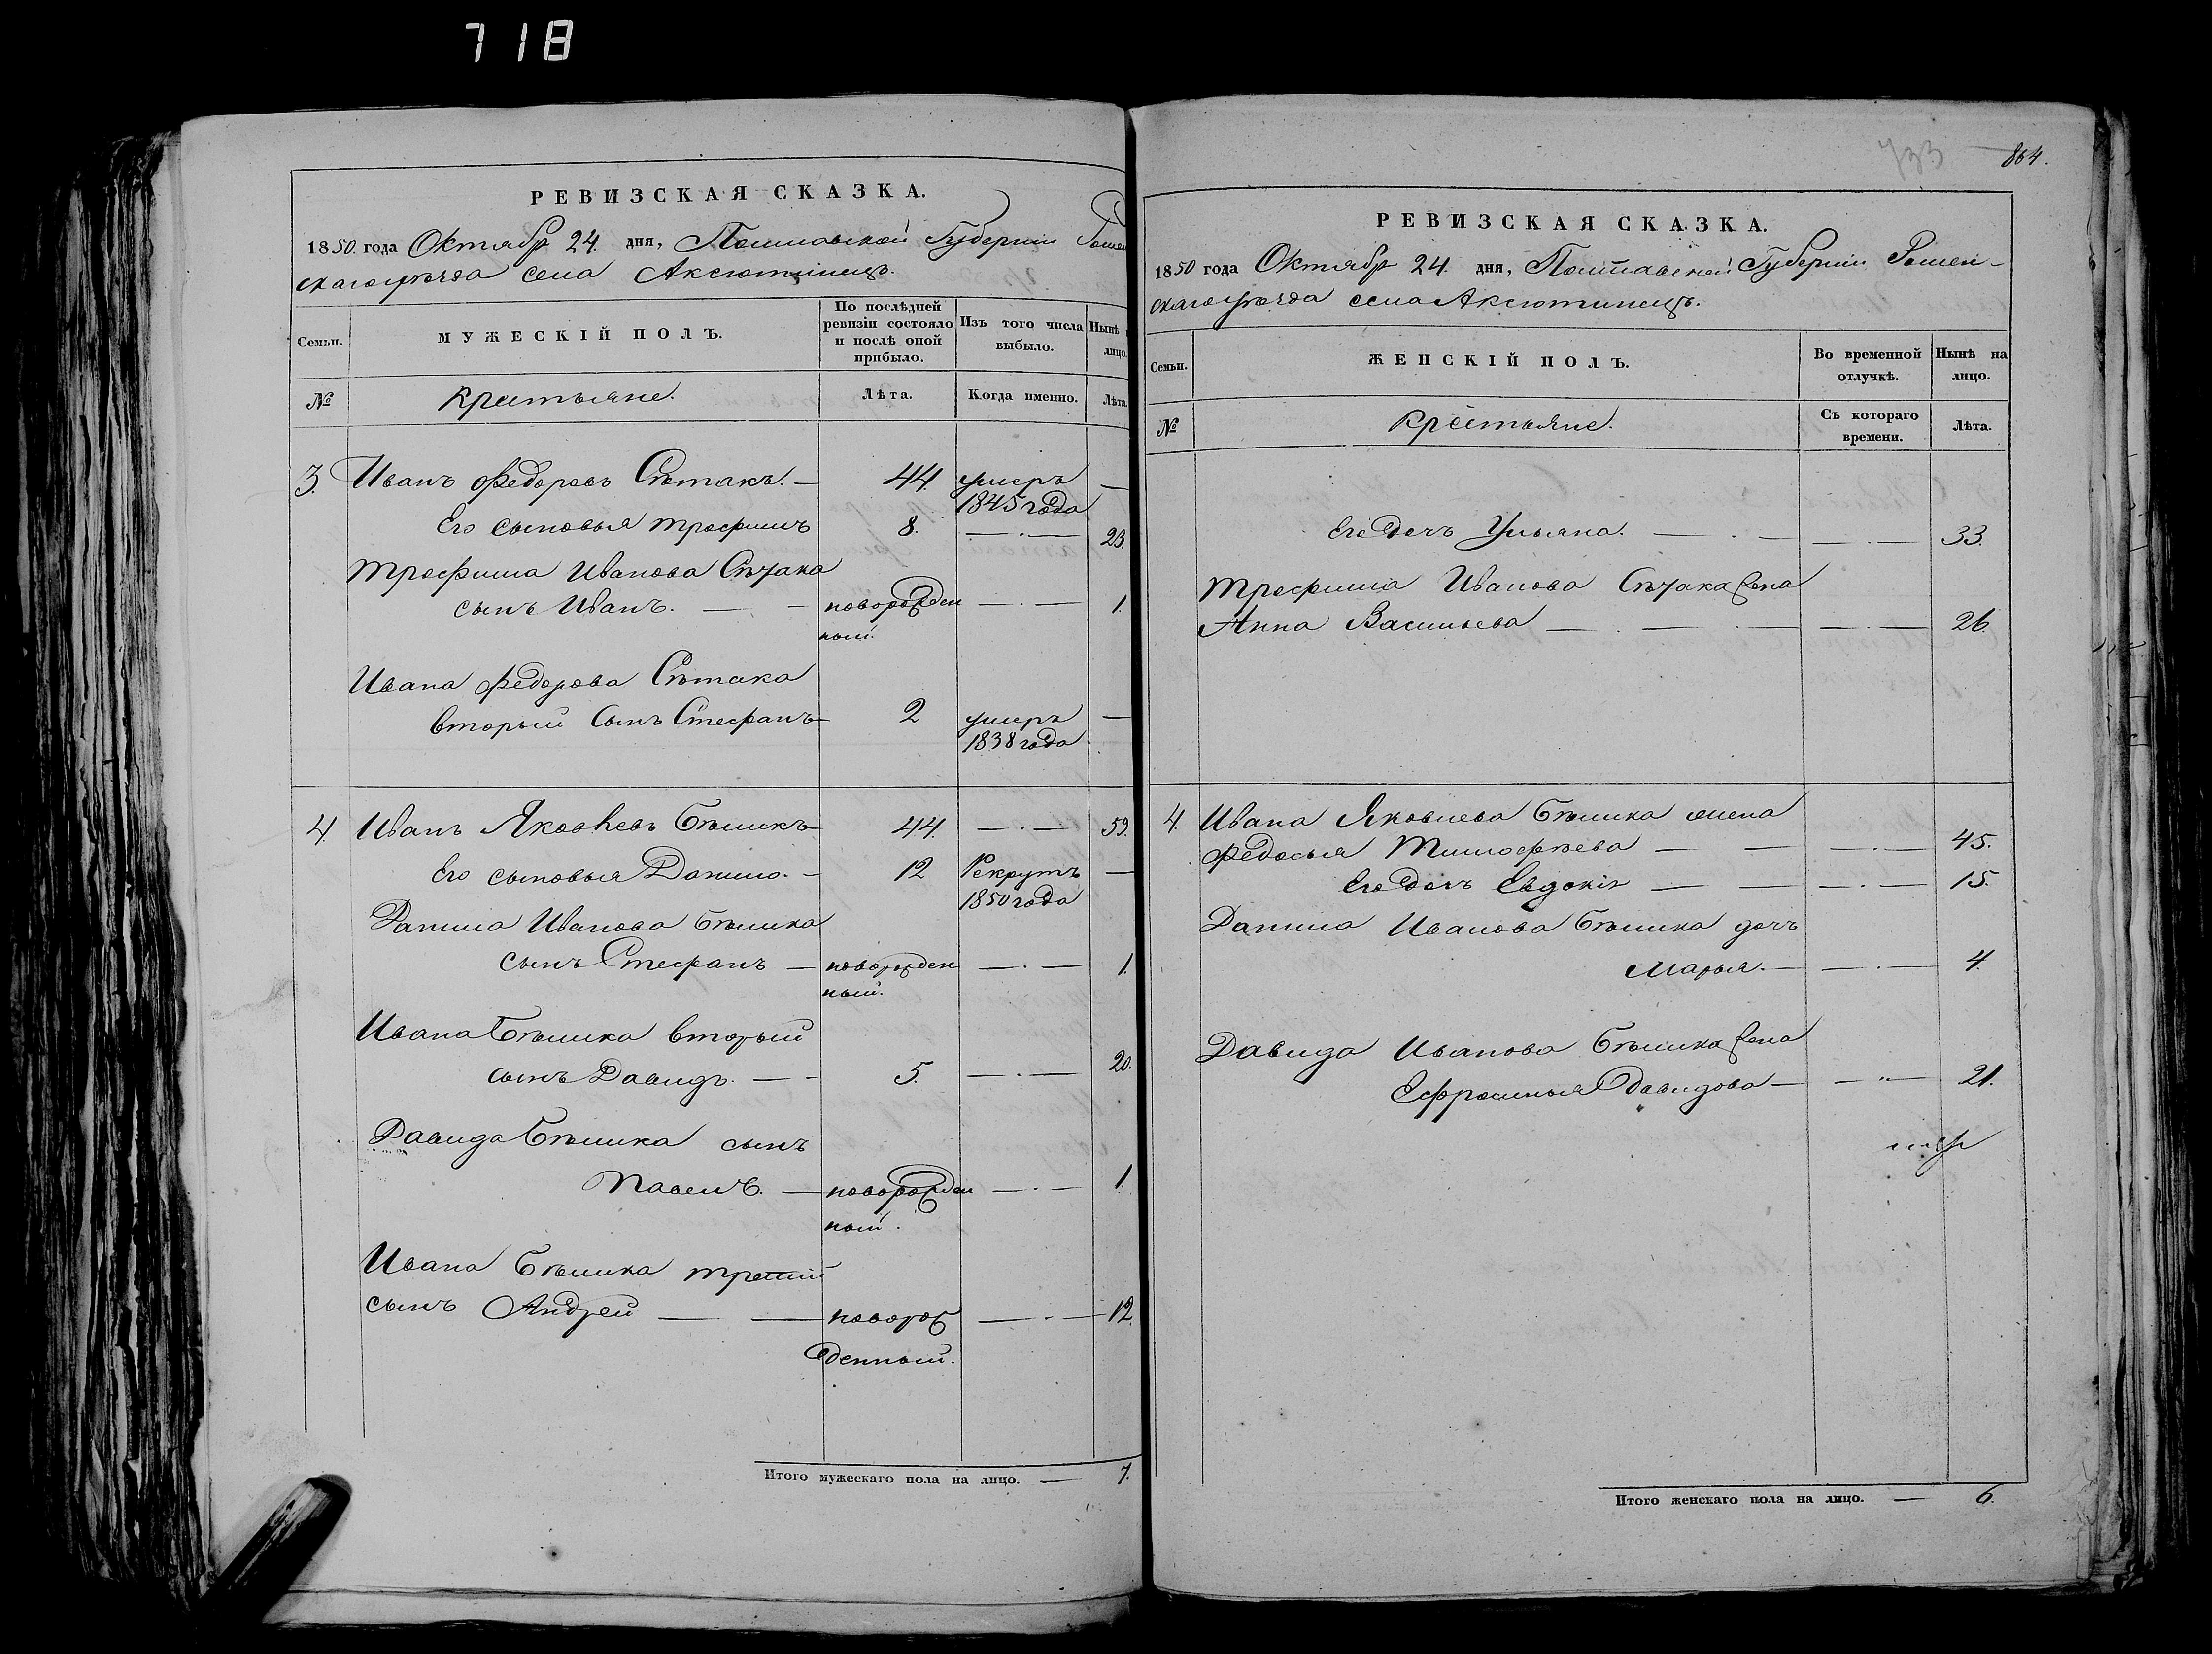 718
РЕВИЗСКАЯ СКАЗКА.
1850. года Октябр 24. дня, Полтавской Губерніи Ромен
скаго уѣзда села Аксютинецъ.
Семьи.
МУЖЕСКІЙ ПОЛЪ.
По послѣдней ревизіи состояло и послѣ оной прибыло.
Изъ того числа выбыло.
Нынѣ лицо.
№
Крестьяне.
Лѣта.
Когда именно.
Лѣта.
3. Иванъ Федоровъ Сѣтакъ. — 44. умеръ —
1845 года
Его сыновья Трофимъ 8. — . — 23.
Трофима Иванова
сынъ Иванъ. — - новорожден — . — 1.
ный.
Ивана Федорова Сѣтака
вторый сынъ Стефанъ 2 умеръ —
1838 года
4. Иванъ Яковлевъ Бѣликъ 44. — . — 59.
Его сыновья Данило. - 12 Рекрутъ —
1850 года
Данила Иванова Бѣлика
сынъ Стефанъ — новорожден — . — 1.
ный.
Ивана Бѣлика вторый
сынъ Давидъ. — - 5. — . — 20.
Давида Бѣлика сынъ
Павелъ. — новорожден — . — 1.
ный.
Ивана Бѣлика третій
сынъ Андрей — — новорож — . — 12.
денный.
Итого мужескаго пола на лицо. — 7.
733
864.
РЕВИЗСКАЯ СКАЗКА.
1850 года Октябр 24. дня, Полтавской Губерніи Ромен-
скаго уѣзда села Аксютинецъ.
Семьи.
ЖЕНСКІЙ ПОЛЪ.
Во временной отлучкѣ.
Нынѣ на лицо.
№
Крестьяне.
Съ котораго времени.
Лѣта.
Его дочь Ульяна. — . — — . — 33.
Трофима Иванова жена
Анна Васильева — . — . — — . — 26.
4. Ивана Яковлева Бѣлика жена
Федосья Тимофѣева — — — . — 45.
Его дочь Евдокія — — — . — 15.
Данила Иванова Бѣлика дочь
Марья. — — . — 4.
Давида Иванова Бѣлика жена
Ефросинья Давидова — — „ — 21.
Итого женскаго пола на лицо. — 6.